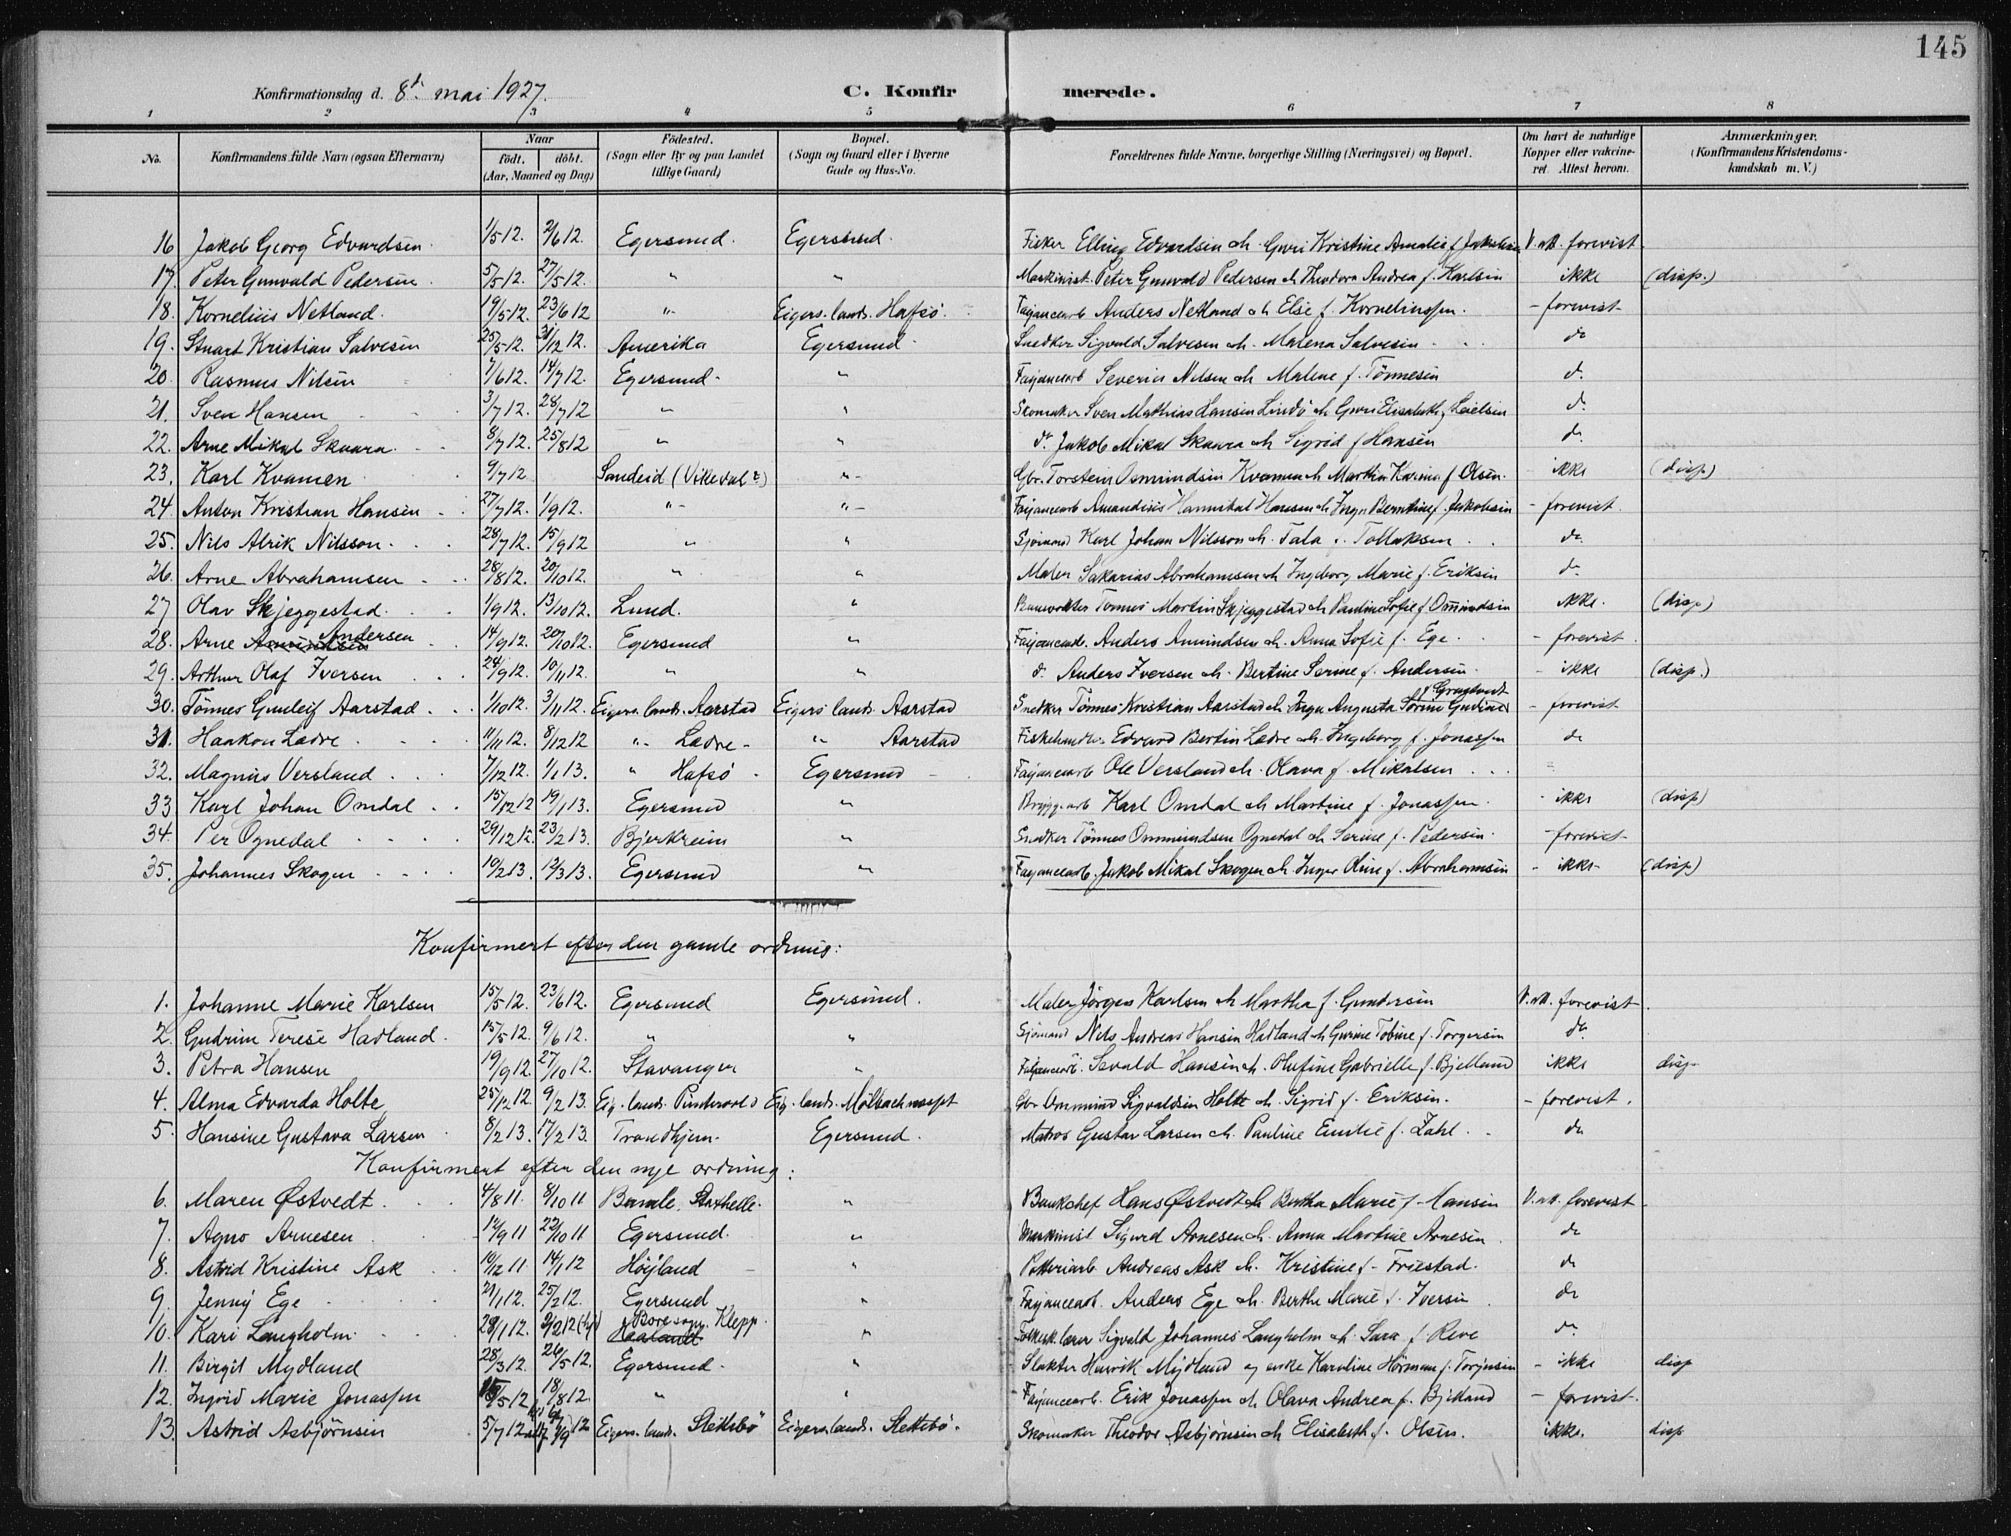 145
Konfirmationsdag d. 8de mai 1927.
C. Konfirmerede.
1 2 3 4 5 6 7 8
No. Konfirmandens fulde Navn (ogsaa Efternavn) Naar født. døbt. (Aar, Maaned og Dag) Fødested. (Sogn eller By og paa Landet tillige Gaard) Bopæl. (Sogn og Gaard eller i Byerne Gade og Hus-No. Forældrenes fulde Navne, borgerlige Stilling (Næringsvei) og Bopæl. Om havt de naturlige Kopper eller vakcineret. Attest herom. Anmærkninger. (Konfirmandens Kristendomskundskab m. V.)
16 Jakob Georg Edvardsen. 1/5 12. 2/6 12. Egersund. Egersund. Fisker Elling Edvardsen Guri Kristine Amalie f. Jakobsen V. att. forevist
17. Peter Gunvald Pedersen 5/5 12. 27/5 12. " " Maskinist Peter Gunvald Pedersen Theodora Andrea f. Karlsen ikke (disp.)
18. Kornelius Netland. 19/5 12. 23/6 12 " Eigers. lands. Hafsø. Fajancearb Anders Netland Else f. Korneliussen. - forevist
19. Stuart Kristian Salvesen 25/5 12. 31/12 12. Amerika Egersund. Snedker Sigvald Salvesen Malena Salvesen do
20. Rasmus Nilsen 7/6 12. 14/7 12. Egersund. " Fajancearb Severin Nilsen Malene f. Tønnesen do
21. Sven Hansen 3/7 12. 28/7 12 " " Skomaker Sven Mathias Hansen Lindø Guri Elisabeth f. do
22. Arne Mikal Skaara 8/7 12. 25/8 12 " " do Jakob Mikal Skaara Sigrid f Hansen do
23. Karl Kvamen 9/7 12 Sandeid (Vikedal) " Gbr. Torstein Osmundsen Kvamen Martha Karina f Olsen. ikke (disp)
24. Anton Kristian Hansen 27/7 12. 1/9 12. " " Fajancearb Amandius Hannibal Hansen Inga Berntine f. Jakobsen - forevist.
25. Nils Alrik Nilsson. 28/7 12. 15/9 12 " " Sjømand Karl Johan Nilsson Tala f. Tollaksen do
26. Arne Abrahamsen 28/8 12. 20/10 12. " " Maler Sakarias Abrahamsen Ingeborg Marie f. Eriksen do
27 Olav Skjeggestad. 1/9 12. 13/10 12. Lund. " Banevokter Tønnes Martin Skjeggestad Pauline Sofie f. Omundsen ikke. (disp)
28. Arne Amundsen Andersen 14/9 12. 20/10 12. Egersund " Fajancearb. Anders Amundsen Anna Sofie f. Ege. - forevist.
29. Arthur Olaf Iversen 24/9 12. 10/11 12. " " do Anders Iversen Bertine Serine f. Andersen. - ikke (disp.)
30. Tønnes Gunleif Aarstad 1/10 12. 3/11 12. Eigers. lands. Aarstad Eigers lands. Aarstad Snedker Tønnes Kristian Aarstad Inga Augusta Sørine - forevist
31. Haakon Lædre 11/11 12. 8/12 12 " Lædre - " Aarstad Fiskehandler Edvard Bertin Lædre Ingeborg f. Jonassen do
32. Magnus Versland 7/12 12. 1/1 13. " Hafsø. Egersund Fajancearb Ole Versland Olava f. Mikalsen "
33 Karl Johan Omdal 15/12 12 19/1 13. Egersund " Bryggearb Karl Omdal Martine f. Jonassen. - ikke (disp)
34. Per Ognedal 29/12 12. 23/2 13. Bjerkreim " Snedker Tønnes Ommundsen Ognedal Serine f. Pedersen. - forevist
35. Johannes Skogen 10/2 13. 12/3 13. Egersund " Fajancearb. Jakob Mikal Skogen Inger Oline f. Abrahamsen - ikke (disp)
Konfirmert efter den gamle ordning:
1. Johanne Marie Karlsen 15/5 12. 23/6 12. Egersund Egersund. Maler Jørgen Karlsen Martha f. Gundersen V. att. forevist
2. Gudrun Terese Hadland. 15/5 12. 9/6 12. " " Sjømand Nils Andreas Hansen Hadland Gurine Tobine f. Torgersen do
3. Petra Hansen 19/9 12. 27/10 12. Stavanger " Fajancearb. Sevald Hansen Olufine Gabrielle f. Bjelland ikke disp
4. Alma Edvarda Holte 25/12 12 9/2 13. Eig. lands. Eig. lands. Gbr. Ommund Sigvaldsen Holte Sigrid f. Eriksen. - forevist.
5. Hansine Gustava Larsen 8/2 13. 17/2 13. Trondhjem. Egersund. Matros Gustav Larsen Pauline Emilie f. Zahl. do
Konfirmert efter den nye ordning:
6. Maren Østvedt. 4/8 11. 8/10 11 Bamle. Stathelle. " Bankchef Hans Østvedt Bertha Marie f. Hansen V. att. forevist
7. Agno Arnesen 12/9 11 22/10 11 Egersund. " Maskinist Sigurd Arnesen Anna Martine Arnesen do
8. Astrid Kristine Ask 10/12 11 14/1 12 Høyland " Potteriarb Andreas Ask Kristine f. Friestad. do
9. Jenny Ege 29/1 12. 25/2 12. Egersund " Fajancearb. Anders Ege Berthe Marie f. Iversen do
10. Kari Langholm. 28/1 12. Haaland Bore sogn. Klepp " Folkesk. lærer Sigvald Johannes Langholm Sara f. Reve do
11. Birgit Mydland 28/3 12. 26/5 12. Egersund. " Slakter Henrik Mydland Karoline f. Torjusen - ikke disp
12. Ingrid Marie Jonassen 5 12 18/8 12. " " Fajancearb. Erik Jonassen Olava Andrea f. Bjelland - forevist.
13. Astrid Asbjørnsen 5/7 12 Eigers. lands. Slettebø Eigers. lands. Slettebø. Skomaker Theodor Asbjørnsen Elisabeth f. Olsen. ikke. disp